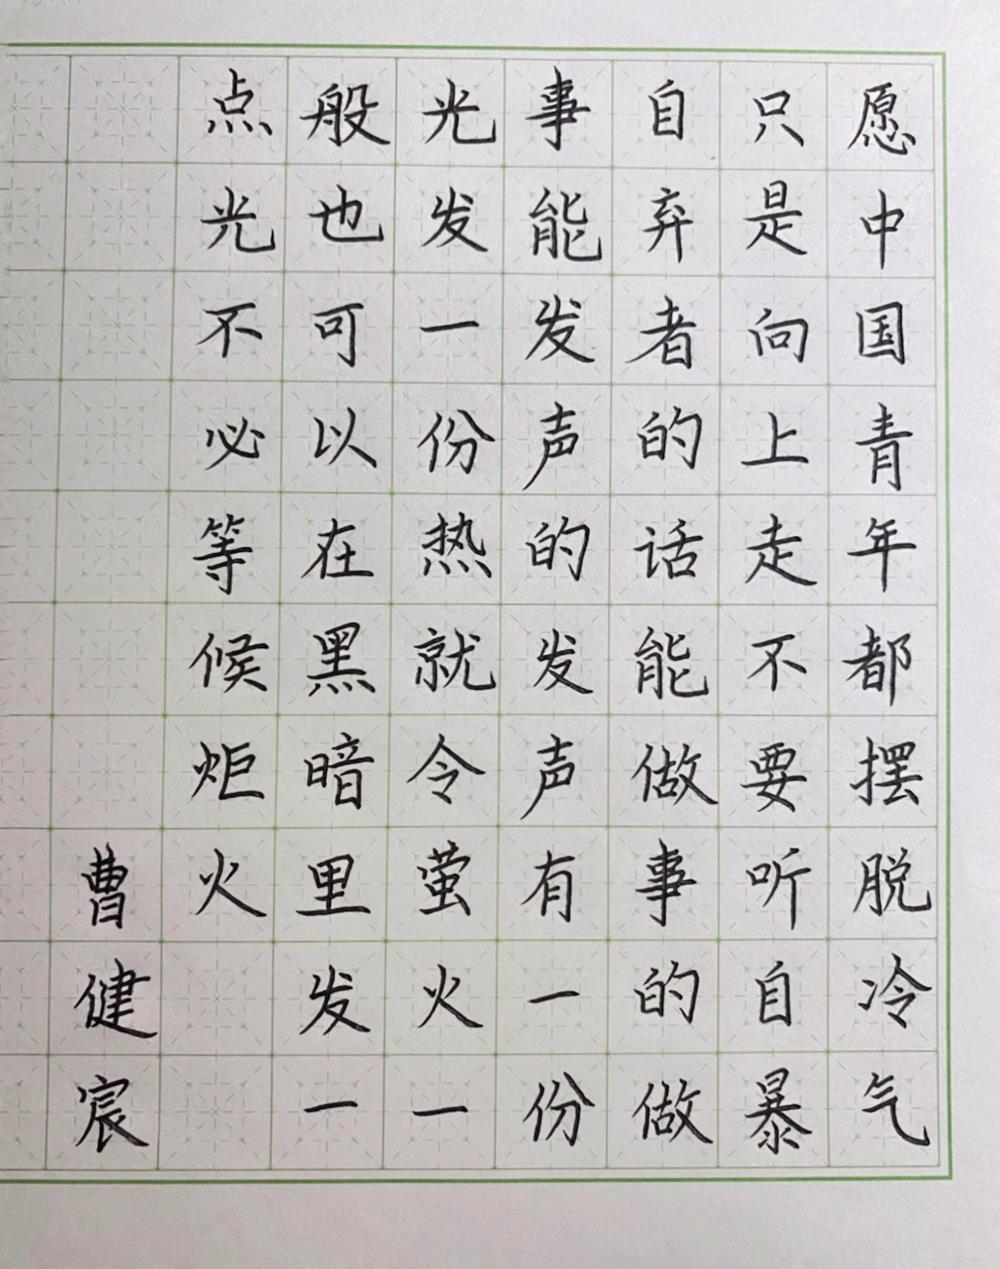 愿中国青年都摆脱冷气
只是向上走不要听自暴
自弃者的话能做事的做
事能发声的发声有一份
光发一份热就令萤火一
般也可以在黑暗里发一
点光不必等候炬火
曹健宸